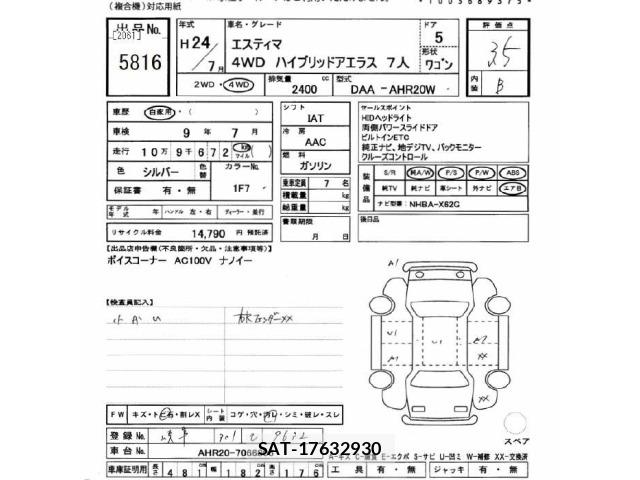 (複合機)対応用紙
出品号No.
[2081]
5816
年式 車名・グレード ドア 評価点
H24 エスティマ 5 3.5
/ 7月 4WD ハイブリッドアエラス 7人 形状 ワゴン
2WD・4WD 排気量 2400 cc 型式 DAA -AHR20W 内装 B
車歴 自家用・( )
車検 9 年 7 月
走行 10万 9千 6 7 2 km マイル ( )
色 シルバー 色替 カラーNo.
保証書 有・無 1F7
モデル年式 年 ハンドル 左・右 ディーラー・並行
リサイクル料金 14,790 円 預託済
シフト IAT
冷房 AAC
燃料 ガソリン
乗車定員 7 名
積載量 kg
総重量 kg
書類期限
月 日
セールスポイント
HIDヘッドライト
両側パワースライドドア
ビルトインETC
純正ナビ、地デジTV、バックモニター
クルーズコントロール
装備品 S/R 純A/W P/S P/W ABS
純TV 純ナビ 革シート 外ナビ エアB
ナビ型番: NHBA-X62G
後日品
【出品店申告欄(不良箇所・欠品・注意事項等)】
ボイスコーナー AC100V ナノイー
【検査員記入】
小キズ
A1
U1 U1 E2
A1 XX
XX
スペア
FW キズ・ト・石・削レX シート内装 コゲ・穴・汚レ・シミ・破レ・スレ
登録No. 岐阜 301
車台No. AHR20-7066
SAT-17632930
A-キズ E-エクボ S-サビ U-凹ミ W-補修 XX-交換済
車庫証明用 長さ 481 幅 182 高さ 176 工具 有・無 ジャッキ 有・無